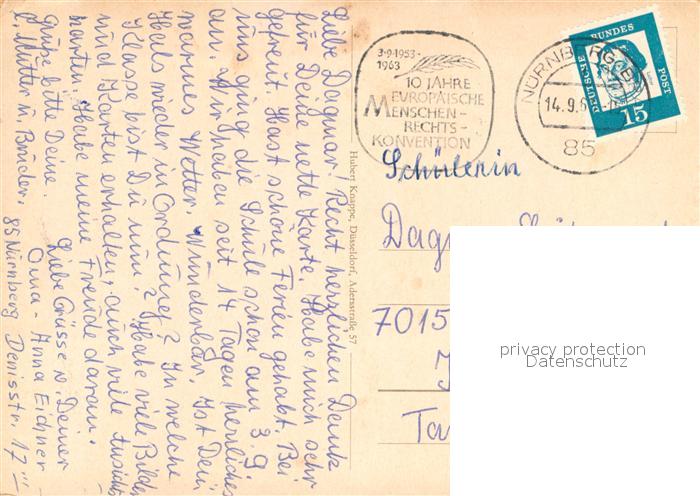 Liebe Dagmar! Recht herzlichen Dank
für Deine nette Karte. Habe mich sehr
gefreut. Hast schöne Ferien gehabt. Bei
uns ging die Schule schon am 3 9
an. Wir haben seit 14 Tagen herrliches
warmes Wetter. Wunderbar. Ist Dein
Hals wieder in Ordnung? In welche
Klasse bist Du nun? Habe viel Bilder
und Karten erhalten, auch viele Ansichts
karten. Habe meine Freude daran.
Grüße bitte Deine Liebe Grüsse v. Deiner
l. Mutter u. Brüder. Oma - Anna Eichner
85 Nürnberg Denisstr. 17
Hubert Knappe, Düsseldorf, Adersstraße 57
3·9·1953-
1963
10 JAHRE
EUROPÄISCHE
MENSCHEN-
RECHTS-
KONVENTION
NÜRNBERG
14.9.6
85
DEUTSCHE BUNDESPOST
15
Schülerin
7015
privacy protection
Datenschutz